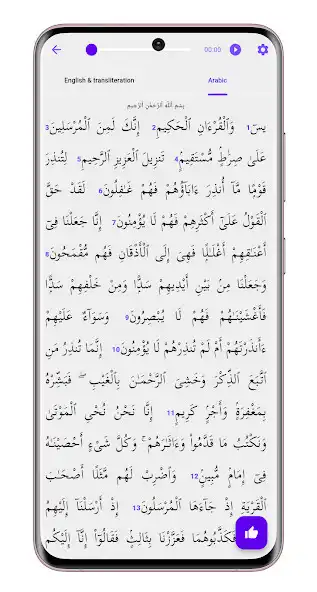 00:00
English & transliteration Arabic
بِسْمِ ٱللَّهِ ٱلرَّحْمَٰنِ ٱلرَّحِيمِ
يسٓ 1 وَٱلْقُرْءَانِ ٱلْحَكِيمِ 2 إِنَّكَ لَمِنَ ٱلْمُرْسَلِينَ 3
عَلَىٰ صِرَٰطٍ مُّسْتَقِيمٍ 4 تَنزِيلَ ٱلْعَزِيزِ ٱلرَّحِيمِ 5 لِتُنذِرَ
قَوْمًا مَّآ أُنذِرَ ءَابَآؤُهُمْ فَهُمْ غَٰفِلُونَ 6 لَقَدْ حَقَّ
ٱلْقَوْلُ عَلَىٰٓ أَكْثَرِهِمْ فَهُمْ لَا يُؤْمِنُونَ 7 إِنَّا جَعَلْنَا فِىٓ
أَعْنَٰقِهِمْ أَغْلَٰلًا فَهِىَ إِلَى ٱلْأَذْقَانِ فَهُم مُّقْمَحُونَ 8
وَجَعَلْنَا مِنۢ بَيْنِ أَيْدِيهِمْ سَدًّا وَمِنْ خَلْفِهِمْ سَدًّا
فَأَغْشَيْنَٰهُمْ فَهُمْ لَا يُبْصِرُونَ 9 وَسَوَآءٌ عَلَيْهِمْ
ءَأَنذَرْتَهُمْ أَمْ لَمْ تُنذِرْهُمْ لَا يُؤْمِنُونَ 10 إِنَّمَا تُنذِرُ مَنِ
ٱتَّبَعَ ٱلذِّكْرَ وَخَشِىَ ٱلرَّحْمَٰنَ بِٱلْغَيْبِ ۖ فَبَشِّرْهُ
بِمَغْفِرَةٍ وَأَجْرٍ كَرِيمٍ 11 إِنَّا نَحْنُ نُحْىِ ٱلْمَوْتَىٰ
وَنَكْتُبُ مَا قَدَّمُوا۟ وَءَاثَٰرَهُمْ ۚ وَكُلَّ شَىْءٍ أَحْصَيْنَٰهُ
فِىٓ إِمَامٍ مُّبِينٍ 12 وَٱضْرِبْ لَهُم مَّثَلًا أَصْحَٰبَ
ٱلْقَرْيَةِ إِذْ جَآءَهَا ٱلْمُرْسَلُونَ 13 إِذْ أَرْسَلْنَآ إِلَيْهِمُ
فَكَذَّبُوهُمَا فَعَزَّزْنَا بِثَالِثٍ فَقَالُوٓا۟ إِنَّآ إِلَيْكُم